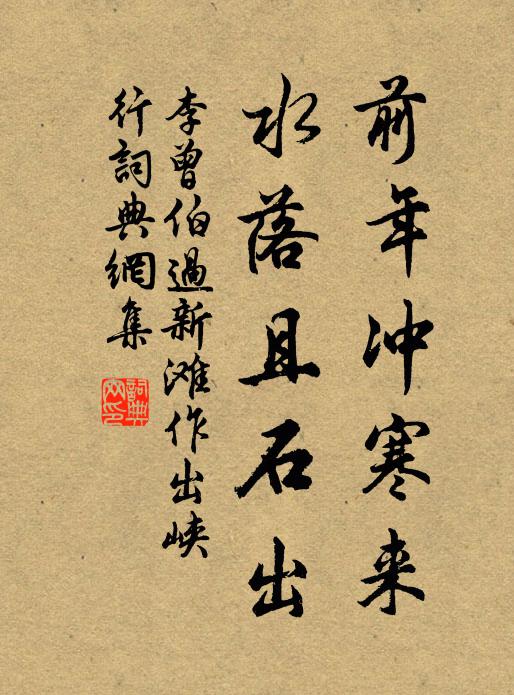 前年冲寒来
水落且石出
李曾伯過新滩作出峡
行詞典網集
詞典網印